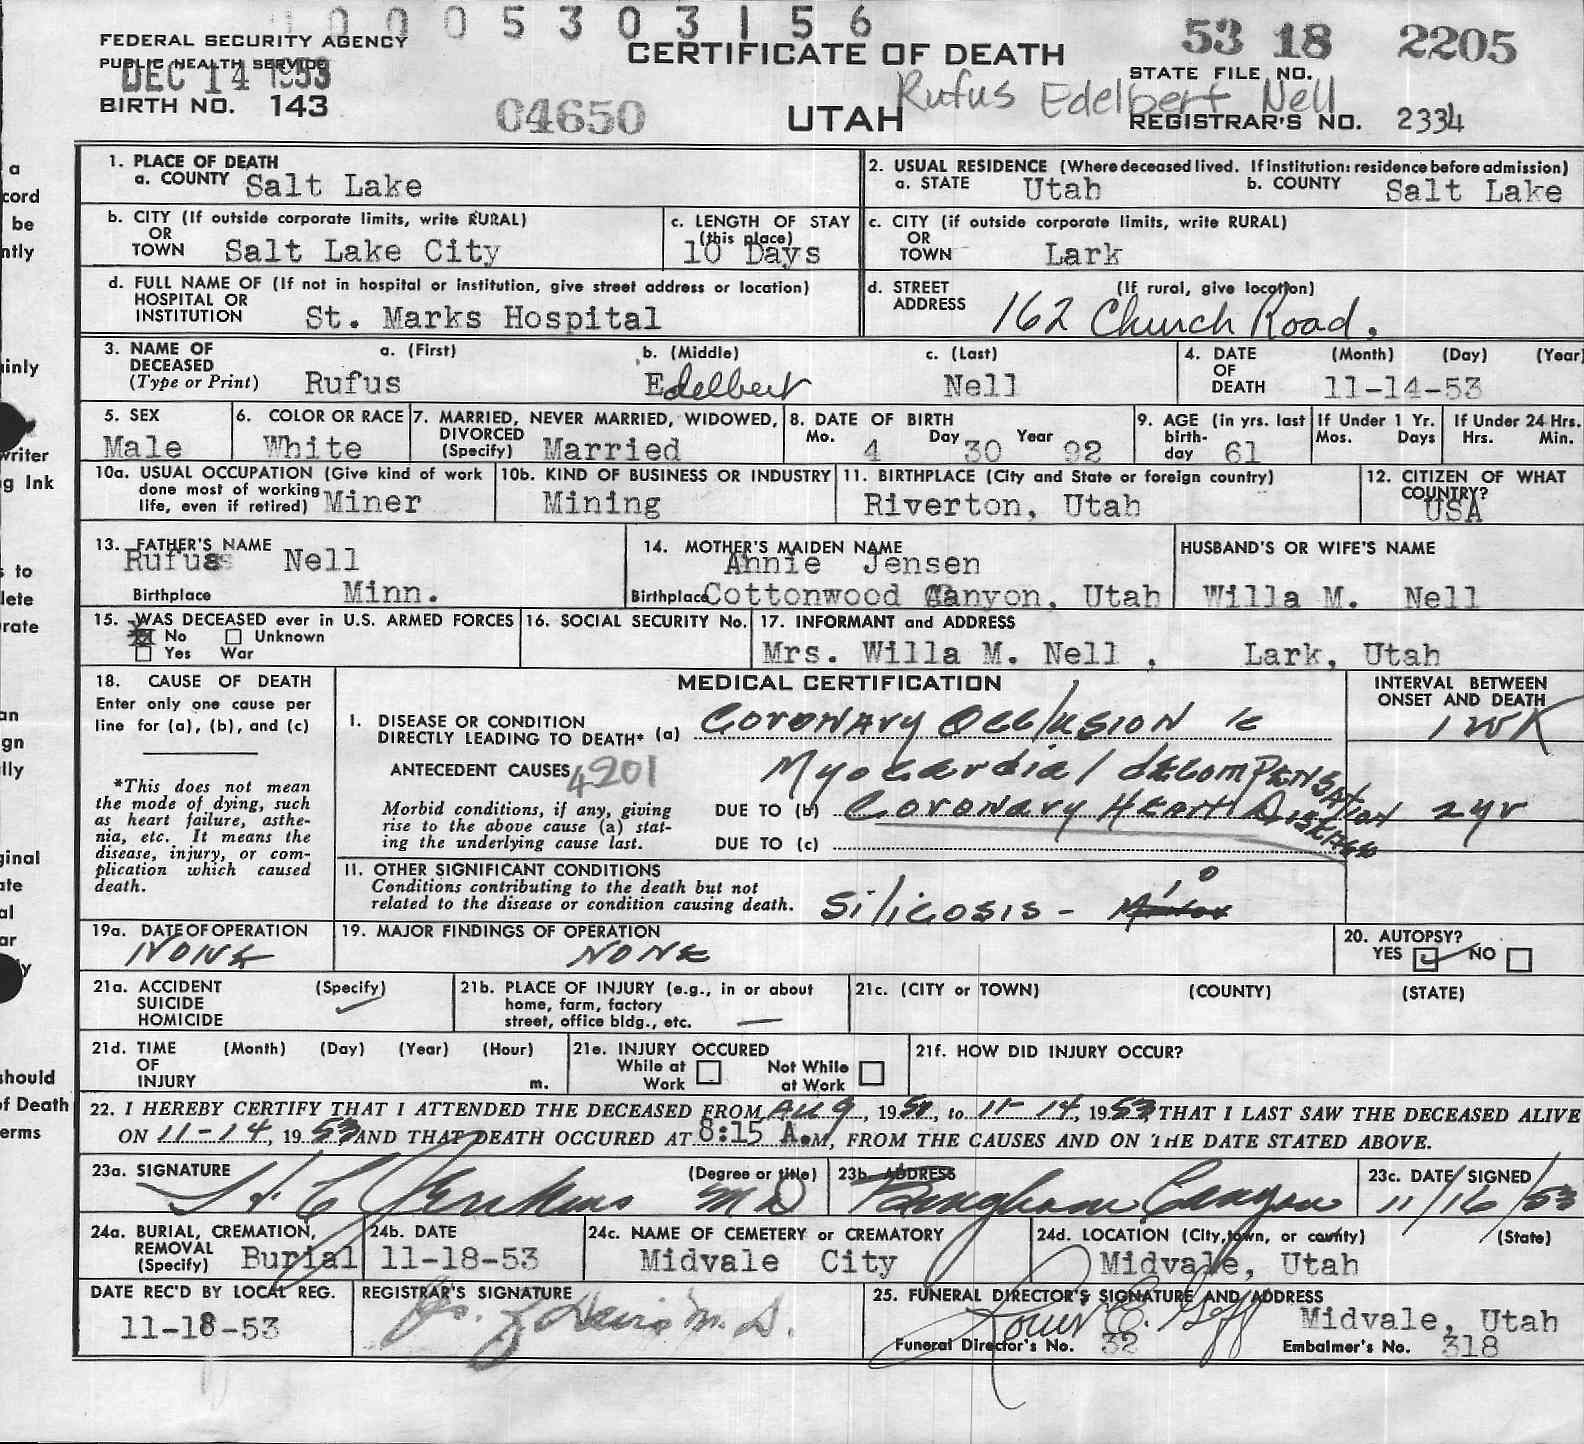 10005303156
FEDERAL SECURITY AGENCY
PUBLIC HEALTH SERVICE
DEC 14 1953
BIRTH NO. 143
04650
CERTIFICATE OF DEATH
UTAH
53 18 2205
STATE FILE NO.
Rufus Edelbert Nell
REGISTRAR'S NO. 2334
1. PLACE OF DEATH
a. COUNTY Salt Lake
2. USUAL RESIDENCE (Where deceased lived. If institution: residence before admission)
a. STATE Utah b. COUNTY Salt Lake
b. CITY (If outside corporate limits, write RURAL)
OR
TOWN Salt Lake City
c. LENGTH OF STAY
(this place)
10 Days
c. CITY (if outside corporate limits, write RURAL)
OR
TOWN Lark
d. FULL NAME OF (If not in hospital or institution, give street address or location)
HOSPITAL OR
INSTITUTION St. Marks Hospital
d. STREET (If rural, give location)
ADDRESS 162 Church Road,
3. NAME OF a. (First) b. (Middle) c. (Last)
DECEASED
(Type or Print) Rufus Edelbert Nell
4. DATE (Month) (Day) (Year)
OF
DEATH 11-14-53
5. SEX
Male
6. COLOR OR RACE
White
7. MARRIED, NEVER MARRIED, WIDOWED,
DIVORCED
(Specify) Married
8. DATE OF BIRTH
Mo. 4 Day 30 Year 92
9. AGE (in yrs. last
birth-
day 61
If Under 1 Yr.
Mos. Days
If Under 24 Hrs.
Hrs. Min.
10a. USUAL OCCUPATION (Give kind of work
done most of working
life, even if retired) Miner
10b. KIND OF BUSINESS OR INDUSTRY
Mining
11. BIRTHPLACE (City and State or foreign country)
Riverton, Utah
12. CITIZEN OF WHAT
COUNTRY?
USA
13. FATHER'S NAME
Rufus Nell
Birthplace Minn.
14. MOTHER'S MAIDEN NAME
Annie Jensen
Birthplace Cottonwood Canyon, Utah
HUSBAND'S OR WIFE'S NAME
Willa M. Nell
15. WAS DECEASED ever in U.S. ARMED FORCES
No Unknown
Yes War
16. SOCIAL SECURITY No.
17. INFORMANT and ADDRESS
Mrs. Willa M. Nell , Lark, Utah
18. CAUSE OF DEATH
Enter only one cause per
line for (a), (b), and (c)
*This does not mean
the mode of dying, such
as heart failure, asthe-
nia, etc. It means the
disease, injury, or com-
plication which caused
death.
MEDICAL CERTIFICATION
INTERVAL BETWEEN
ONSET AND DEATH
I. DISEASE OR CONDITION
DIRECTLY LEADING TO DEATH* (a) Coronary Occlusion c̄ 1 wk
ANTECEDENT CAUSES 4201 Myocardial decompensation
Morbid conditions, if any, giving
rise to the above cause (a) stat-
ing the underlying cause last.
DUE TO (b) Coronary Heart Disease 2 yr
DUE TO (c)
II. OTHER SIGNIFICANT CONDITIONS
Conditions contributing to the death but not
related to the disease or condition causing death. Silicosis -
19a. DATE OF OPERATION
None
19. MAJOR FINDINGS OF OPERATION
None
20. AUTOPSY?
YES NO
21a. ACCIDENT (Specify)
SUICIDE
HOMICIDE
21b. PLACE OF INJURY (e.g., in or about
home, farm, factory
street, office bldg., etc. —
21c. (CITY or TOWN) (COUNTY) (STATE)
21d. TIME (Month) (Day) (Year) (Hour)
OF
INJURY m.
21e. INJURY OCCURED
While at Work Not While at Work
21f. HOW DID INJURY OCCUR?
22. I HEREBY CERTIFY THAT I ATTENDED THE DECEASED FROM Aug, 1950, to 11-14, 1953, THAT I LAST SAW THE DECEASED ALIVE
ON 11-14, 1953 AND THAT DEATH OCCURED AT 8:15 A.M, FROM THE CAUSES AND ON THE DATE STATED ABOVE.
23a. SIGNATURE (Degree or title)
H C Jenkins MD
23b. ADDRESS
Bingham Canyon
23c. DATE SIGNED
11/16/53
24a. BURIAL, CREMATION,
REMOVAL
(Specify) Burial
24b. DATE
11-18-53
24c. NAME OF CEMETERY or CREMATORY
Midvale City
24d. LOCATION (City, town, or county) (State)
Midvale, Utah
DATE REC'D BY LOCAL REG.
11-18-53
REGISTRAR'S SIGNATURE
M. D.
25. FUNERAL DIRECTOR'S SIGNATURE AND ADDRESS
Goff Midvale, Utah
Funeral Director's No. 32 Embalmer's No. 318
a
cord
be
ntly
ainly
writer
g Ink
s to
lete
urate
an
gn
lly
ginal
ate
al
ar
y
should
of Death
erms